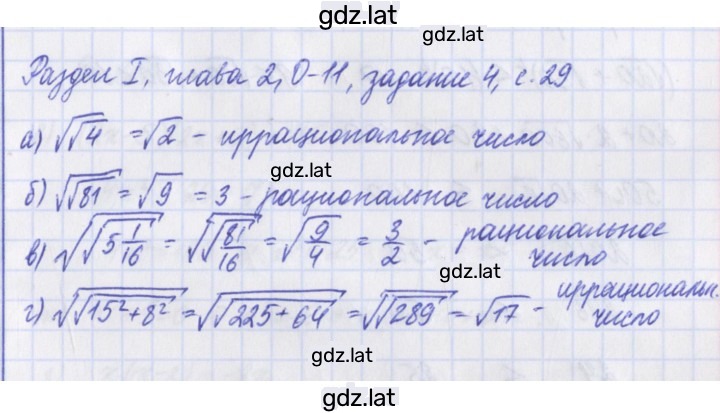 gdz.lat
gdz.lat
Раздел I, глава 2, О-11, задание 4, с. 29
а) √√4 = √2 - иррациональное число
gdz.lat
б) √√81 = √9 = 3 - рациональное число
в) √√5 1/16 = √√81/16 = √9/4 = 3/2 - рациональное число
gdz.lat
г) √√15²+8² = √√225+64 = √√289 = √17 - иррациональн. число
gdz.lat
gdz.lat